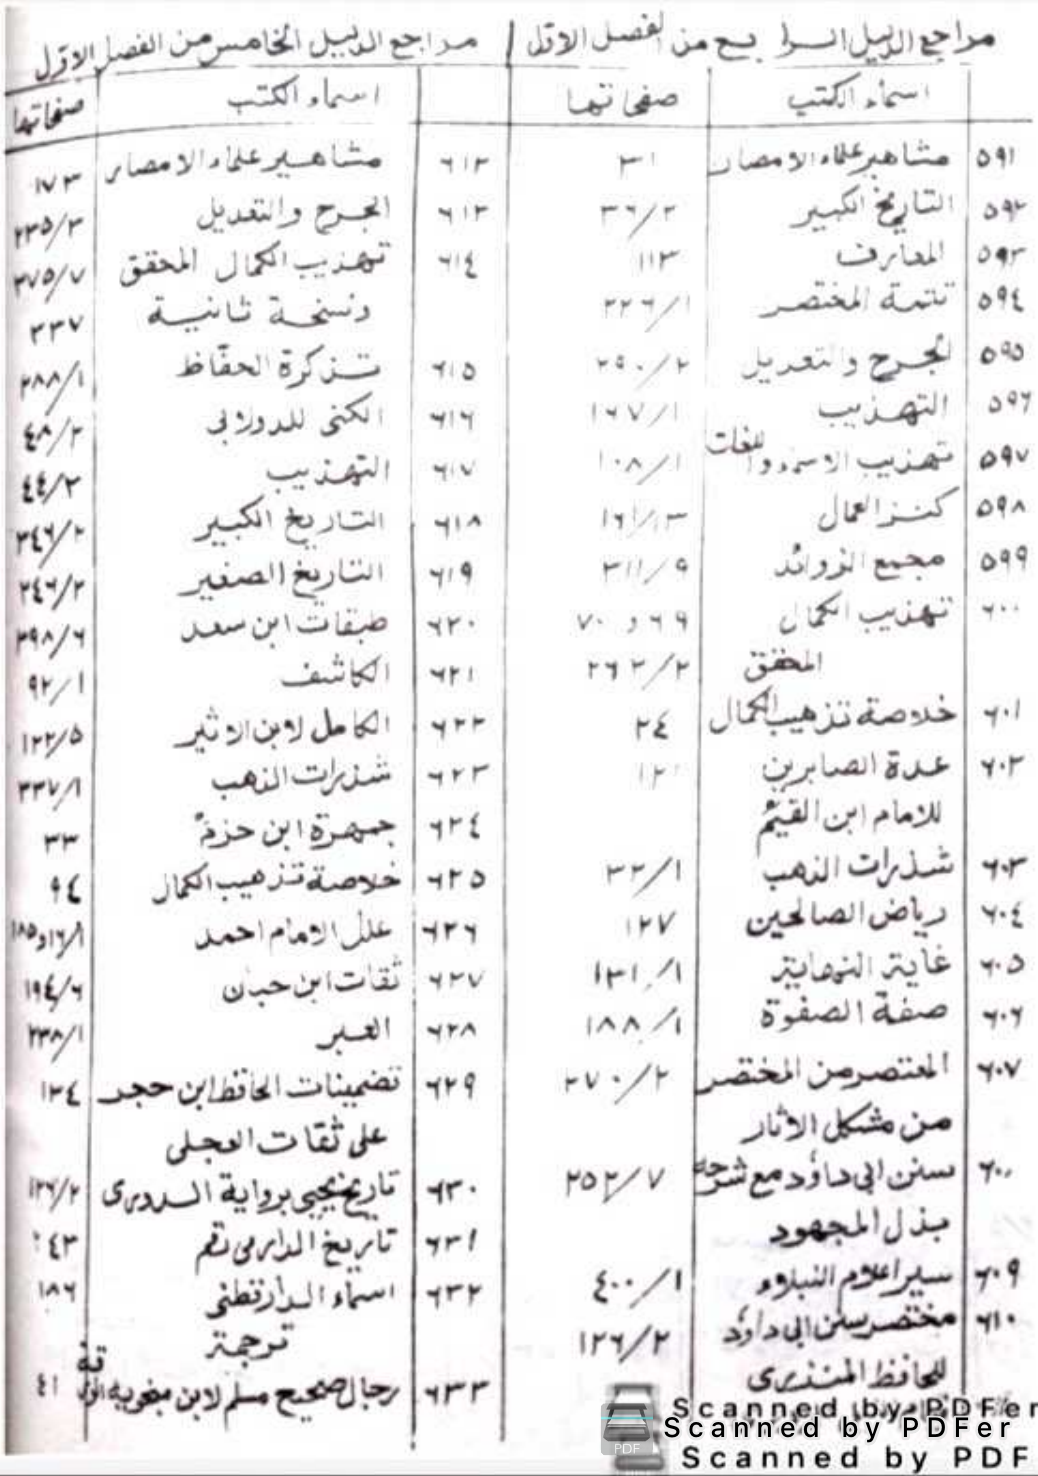 مراجع الدليل الرابع من الفصل الاول
اسماء الكتب صفحاتها
٥٩١ مشاهير علماء الامصار ٣١
٥٩٢ التاريخ الكبير ٣٦/٢
٥٩٣ المعارف ١١٣
٥٩٤ تتمة المختصر ٢٢٦/١
٥٩٥ الجرح والتعديل ٢٥٠/٢
٥٩٦ التهذيب ١٦٧/١
٥٩٧ تهذيب الاسماء واللغات ١٠٨/١
٥٩٨ كنز العمال ١٦١/١٣
٥٩٩ مجمع الزوائد ٣١١/٩
٦٠٠ تهذيب الكمال ٦٩ و ٧٠
المحقق ٢٦٢/٢
٦٠١ خلاصة تذهيب الكمال ٢٤
٦٠٢ عدة الصابرين ١٢١
للامام ابن القيم
٦٠٣ شذرات الذهب ٣٢/١
٦٠٤ رياض الصالحين ١٢٧
٦٠٥ غاية النهاية ١٣١/١
٦٠٦ صفة الصفوة ١٨٨/١
٦٠٧ المعتصر من المختصر ٢٧٠/٢
من مشكل الاثار
سنن ابي داؤد مع شرحه ٢٥٢/٧
بذل المجهود
٦٠٩ سير اعلام النبلاء ٤٠٠/١
٦١٠ مختصر سنن ابي داؤد ١٢٦/٢
للحافظ المنذرى
مراجع الدليل الخامس من الفصل الاول
اسماء الكتب صفحاتها
٦١٢ مشاهير علماء الامصار ١٧٣
٦١٣ الجرح والتعديل ٢٣٥/٣
٦١٤ تهذيب الكمال المحقق ٢٧٥/٧
ونسخة ثانية ٣٣٧
٦١٥ تذكرة الحفاظ ٢٨٨/١
٦١٦ الكنى للدولابى ٤٨/٢
٦١٧ التهذيب ٤٤/٣
٦١٨ التاريخ الكبير ٣٤٦/٢
٦١٩ التاريخ الصغير ٢٤٦/٢
٦٢٠ طبقات ابن سعد ٣٩٨/٦
٦٢١ الكاشف ٩٢/١
٦٢٢ الكامل لابن الاثير ١٢٢/٥
٦٢٣ شذرات الذهب ٣٣٧/١
٦٢٤ جمهرة ابن حزم ٣٣
٦٢٥ خلاصة تذهيب الكمال ٩٤
٦٢٦ علل الامام احمد
٦٢٧ ثقات ابن حبان ١٩٤/٦
٦٢٨ العبر ٢٣٨/١
٦٢٩ تضمينات الحافظ ابن حجر ١٣٤
على ثقات العجلى
٦٣٠ تاريخ يحيى برواية الدورى ١٢٦/٢
٦٣١ تاريخ الدارمى رقم ٢٤٣
٦٣٢ اسماء الدارقطنى ١٨٦
ترجمة
٦٣٣ رجال صحيح مسلم لابن منجويه ٤١
Scanned by PDFer
Scanned by PDFer
Scanned by PDF
PDF